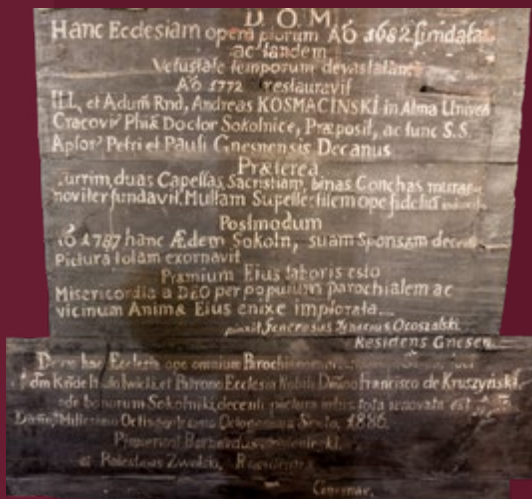 D. O. M.
Hanc Ecclesiam opera piorum Aõ 1682 fundata
ac tandem
Vetustate temporum devastatam
Aõ 1772 restauravit
ILL, et Adum Rnd, Andreas KOSMACINSKI in Alma Univer
Cracovi Phiæ Doctor Sokolnice, Præposit, ac func S.S.
Apſor Petri et Pauli Gnesnensis Decanus
Præterea
Turrim, duas Capellas, Sacristiam, binas Conchas
noviter fundavit. Multam Supellectilem ope fidelium
Postmodum
Aõ 1787 hanc Ædem Sokoln, suam Sponsam
Pictura totam exornavit
Præmium Eius laboris esto
Misericordia a DEO per populum parochialem ac
vicinum Animæ Eius enixe implorata
pinxit Generosus
Residens Gnesen
Denuo hæc Ecclesia ope omnium Parochianorum
et Patrono Ecclesiæ Nobili Domino Francisco de Kruszyński,
bonorum Sokolniki, decenti pictura intus tota renovata est
Millesimo Octingentesimo Octogesimo Sexto, 1886.
Pinxerunt
et Boleslaus Zwolski,